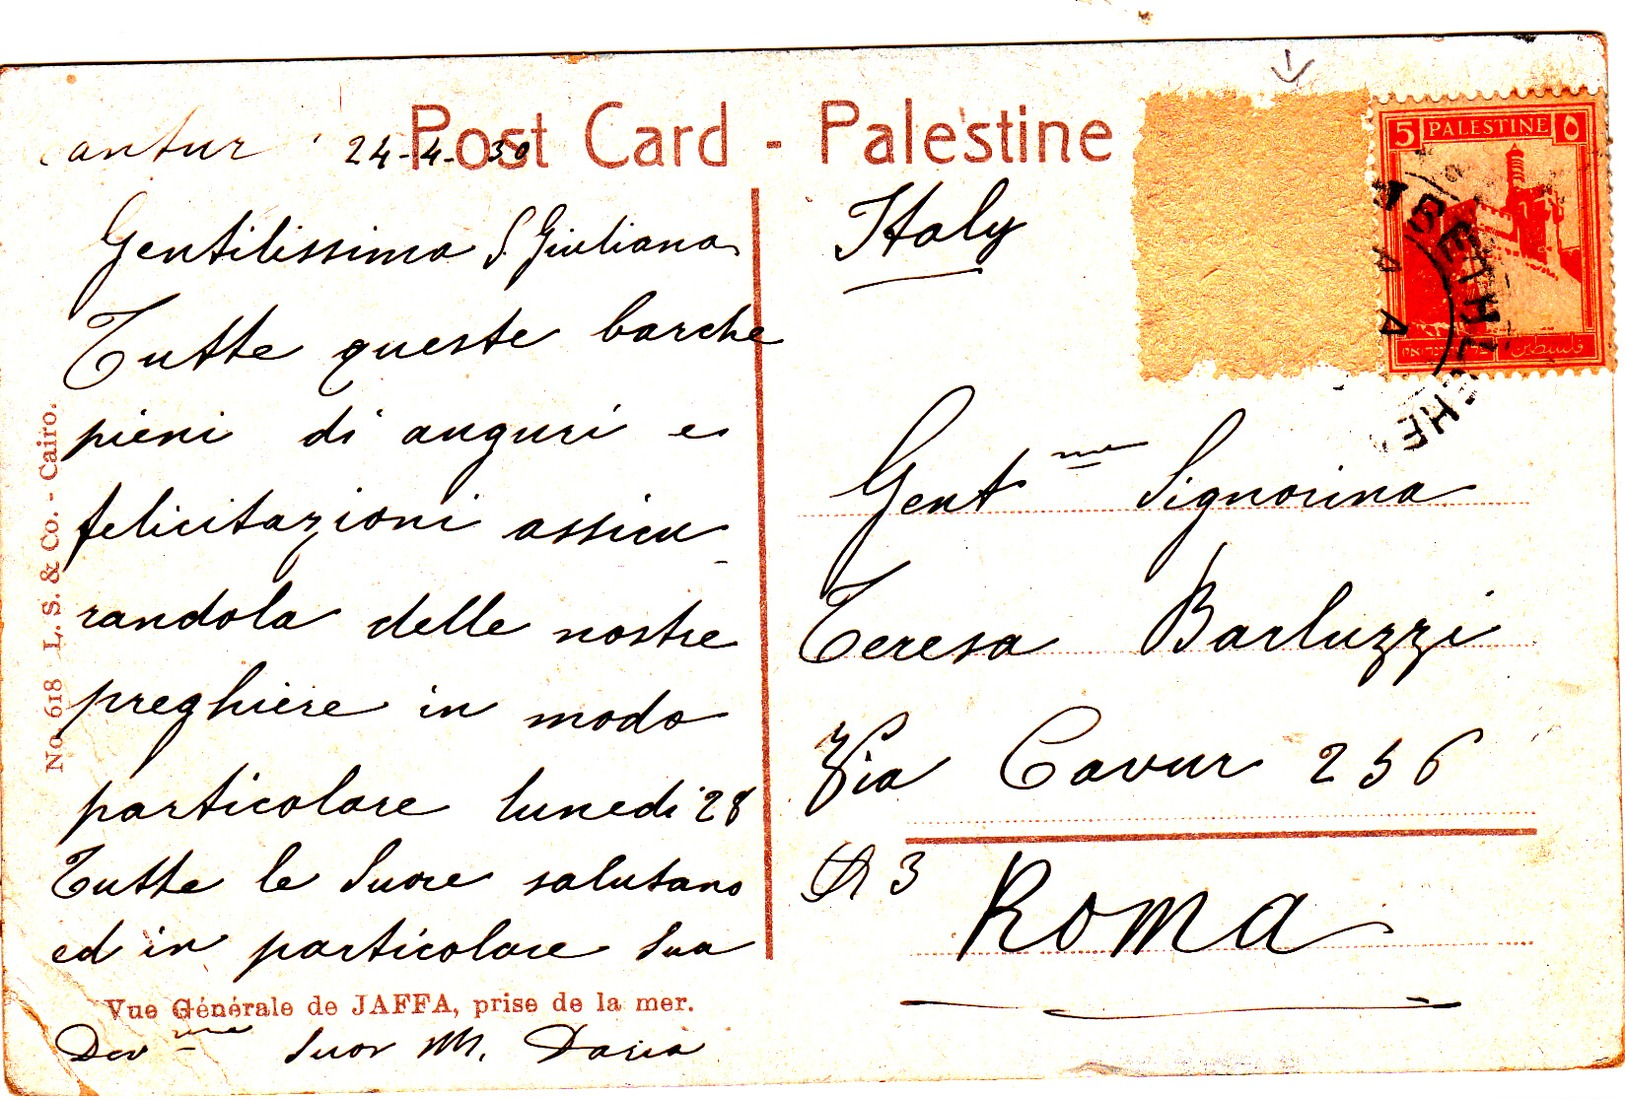 Post Card - Palestine
antur 24-4-30
Gentilissima S. Giuliana
Tutte queste barche
pieni di auguri e
felicitazioni assicu-
randola delle nostre
preghiere in modo
particolare lunedi 28
Tutte le Suore salutano
ed in particolare Sua
Vue Générale de JAFFA, prise de la mer.
Dev me Suor M. Daria
No 618 L. S. & Co. - Cairo.
Italy
5 PALESTINE ٥
فلسطين
BETHLEHEM
Gent me Signorina
Teresa Barluzzi
Via Cavur 256
3
Roma